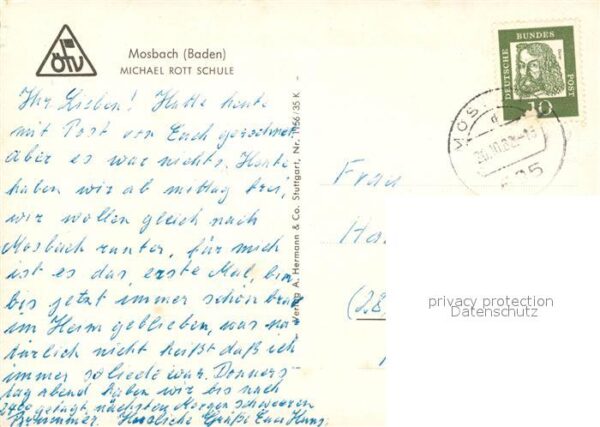 ÖTV
Mosbach (Baden)
MICHAEL ROTT SCHULE
Ihr Lieben! Hatte heute
mit Post von Euch gerechnet
aber es war nichts. Heute
haben wir ab mittag frei,
wir wollen gleich nach
Mosbach runter, für mich
ist es das erste Mal, bin
bis jetzt immer schön brav
im Heim geblieben, was na
türlich nicht heißt daß ich
immer solide war. Donners
tag abend haben wir bis nach
2400 getagt, nächsten Morgen schweren
Brummer. Herzliche Grüße Euer Hans.
Verlag A. Hermann & Co. Stuttgart, Nr. 1166/35 K
DEUTSCHE BUNDESPOST
10
MOS
20.10.62-13
Frau
Ha
(28
privacy protection
Datenschutz